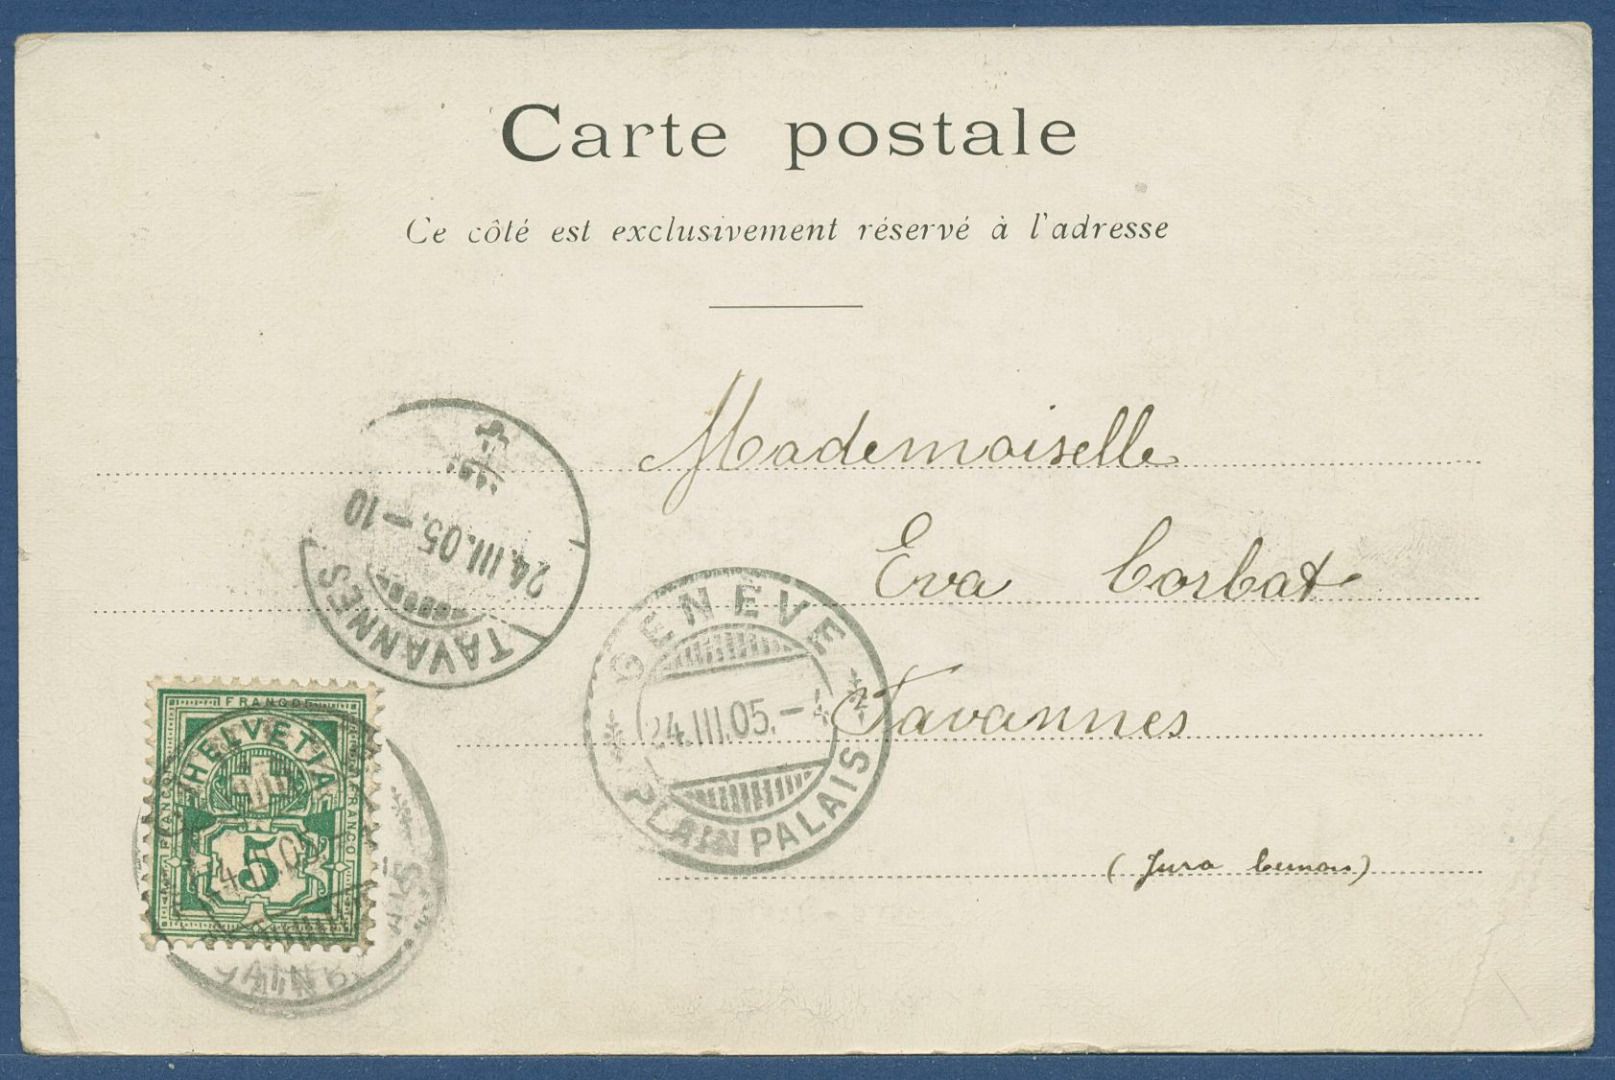 Carte postale
Ce côté est exclusivement réservé à l'adresse
Mademoiselle
Eva Corbat
Tavannes
(Jura bernois)
TAVANNES
24.III.05.-10
GENÈVE
24.III.05.-
PLAINPALAIS
FRANCO
HELVETIA
FRANCO
FRANCO
5